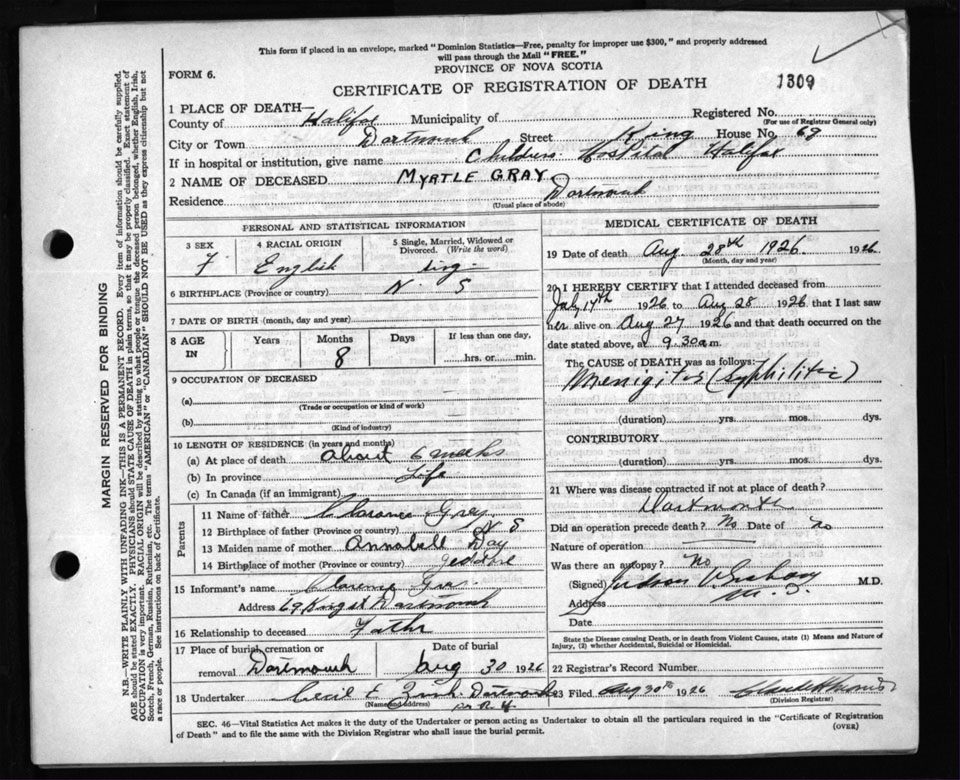 This form if placed in an envelope, marked "Dominion Statistics—Free, penalty for improper use $300," and properly addressed
will pass through the Mail "FREE."
PROVINCE OF NOVA SCOTIA
FORM 6.
CERTIFICATE OF REGISTRATION OF DEATH
1309
1 PLACE OF DEATH—
County of Halifax Municipality of Registered No.
(For use of Registrar General only)
City or Town Dartmouth Street King House No. 69
If in hospital or institution, give name Childrens Hospital Halifax
2 NAME OF DECEASED MYRTLE GRAY
Residence Dartmouth
(Usual place of abode)
PERSONAL AND STATISTICAL INFORMATION
3 SEX 4 RACIAL ORIGIN 5 Single, Married, Widowed or Divorced. (Write the word)
F English sing
6 BIRTHPLACE (Province or country) N. S
7 DATE OF BIRTH (month, day and year)
8 AGE IN Years Months Days If less than one day,
8 hrs. or min.
9 OCCUPATION OF DECEASED
(a)
(Trade or occupation or kind of work)
(b)
(Kind of industry)
10 LENGTH OF RESIDENCE (in years and months)
(a) At place of death About 6 weeks
(b) In province Life
(c) In Canada (if an immigrant)
Parents
11 Name of father Clarence Gray
12 Birthplace of father (Province or country) N S
13 Maiden name of mother Annabell Day
14 Birthplace of mother (Province or country) Jeddore
15 Informant's name Clarence
Address 69 King st Dartmouth
16 Relationship to deceased Father
17 Place of burial, cremation or removal Dartmouth Date of burial Aug 30 1926
18 Undertaker Cecil E Dartmouth
(Name and address)
MEDICAL CERTIFICATE OF DEATH
19 Date of death Aug. 28th 1926. 1926
(Month, day and year)
20 I HEREBY CERTIFY that I attended deceased from
July 17th 1926 to Aug 28 1926 that I last saw
her alive on Aug 27 1926 and that death occurred on the
date stated above, at 9.30 a.m.
The CAUSE OF DEATH was as follows:
Menigitis (Syphilitic)
(duration) yrs. mos. dys.
CONTRIBUTORY
(duration) yrs. mos. dys.
21 Where was disease contracted if not at place of death?
Dartmouth
Did an operation precede death? No Date of no
Nature of operation
Was there an autopsy? No
(Signed) Judson V. Graham M.D.
Address
Date
State the Disease causing Death, or in death from Violent Causes, state (1) Means and Nature of
Injury, (2) whether Accidental, Suicidal or Homicidal.
22 Registrar's Record Number
23 Filed Aug 30th 1926
(Division Registrar)
SEC. 46—Vital Statistics Act makes it the duty of the Undertaker or person acting as Undertaker to obtain all the particulars required in the "Certificate of Registration
of Death" and to file the same with the Division Registrar who shall issue the burial permit.
(OVER)
MARGIN RESERVED FOR BINDING
N.B.—WRITE PLAINLY WITH UNFADING INK—THIS IS A PERMANENT RECORD. Every item of information should be carefully supplied.
AGE should be stated EXACTLY. PHYSICIANS should STATE CAUSE OF DEATH in plain terms, so that it may be properly classified. Exact statement of
OCCUPATION is very important. RACIAL ORIGIN will be described by stating to what people or tongue the deceased person belonged, whether English, Irish,
Scotch, French, German, Russian, Ruthenian, etc. The terms "AMERICAN" or "CANADIAN" SHOULD NOT BE USED as they express citizenship but not
a race or people. See instructions on back of Certificate.